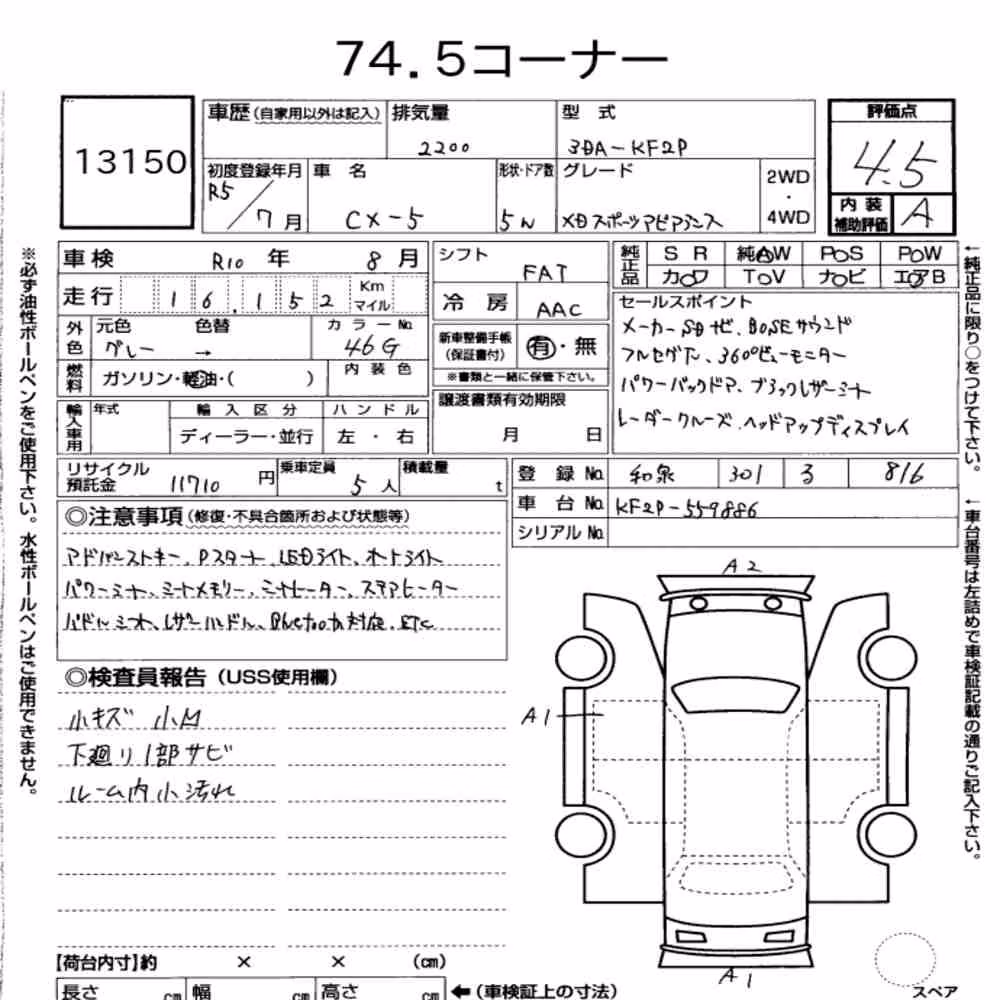 74.5コーナー
13150
車歴(自家用以外は記入) 排気量 2200 型式 3DA-KF2P
評価点 4.5
内装補助評価 A
初度登録年月 R5/7月 車名 CX-5 形状・ドア数 5W グレード XDスポーツアピアランス 2WD・4WD
車検 R10年 8月
走行 16,152 Km マイル
外色 元色 グレー 色替 → カラーNo. 46G
燃料 ガソリン・軽油・( ) 内装色
輸入車用 年式 輸入区分 ディーラー・並行 ハンドル 左・右
シフト FAT
冷房 AAC
新車整備手帳(保証書付) 有・無
※書類と一緒に保管下さい。
譲渡書類有効期限 月 日
純正品 SR 純AW PS PW
カワ TV ナビ エアB
セールスポイント
メーカーSDナビ、BOSEサウンド
フルセグTV、360°ビューモニター
パワーバックドア、ブラックレザーシート
レーダークルーズ、ヘッドアップディスプレイ
リサイクル預託金 11710円 乗車定員 5人 積載量 t
登録No. 和泉 301 る 816
車台No. KF2P-559886
シリアルNo.
◎注意事項(修復・不具合箇所および状態等)
アドバンストキー、Pスタート、LEDライト、オートライト
パワーシート、シートメモリー、シートヒーター、ステアヒーター
パドルシフト、レザーハンドル、Bluetooth対応、ETC
◎検査員報告(USS使用欄)
小キズ 小凹
下廻り1部サビ
ルーム内小汚れ
A2
A1
A1
スペア
【荷台内寸】約 × × (cm)
長さ cm 幅 cm 高さ cm ←(車検証上の寸法)
※必ず油性ボールペンをご使用下さい。水性ボールペンはご使用できません。
←純正品に限り○をつけて下さい。
←車台番号は左詰めで車検証記載の通りご記入下さい。